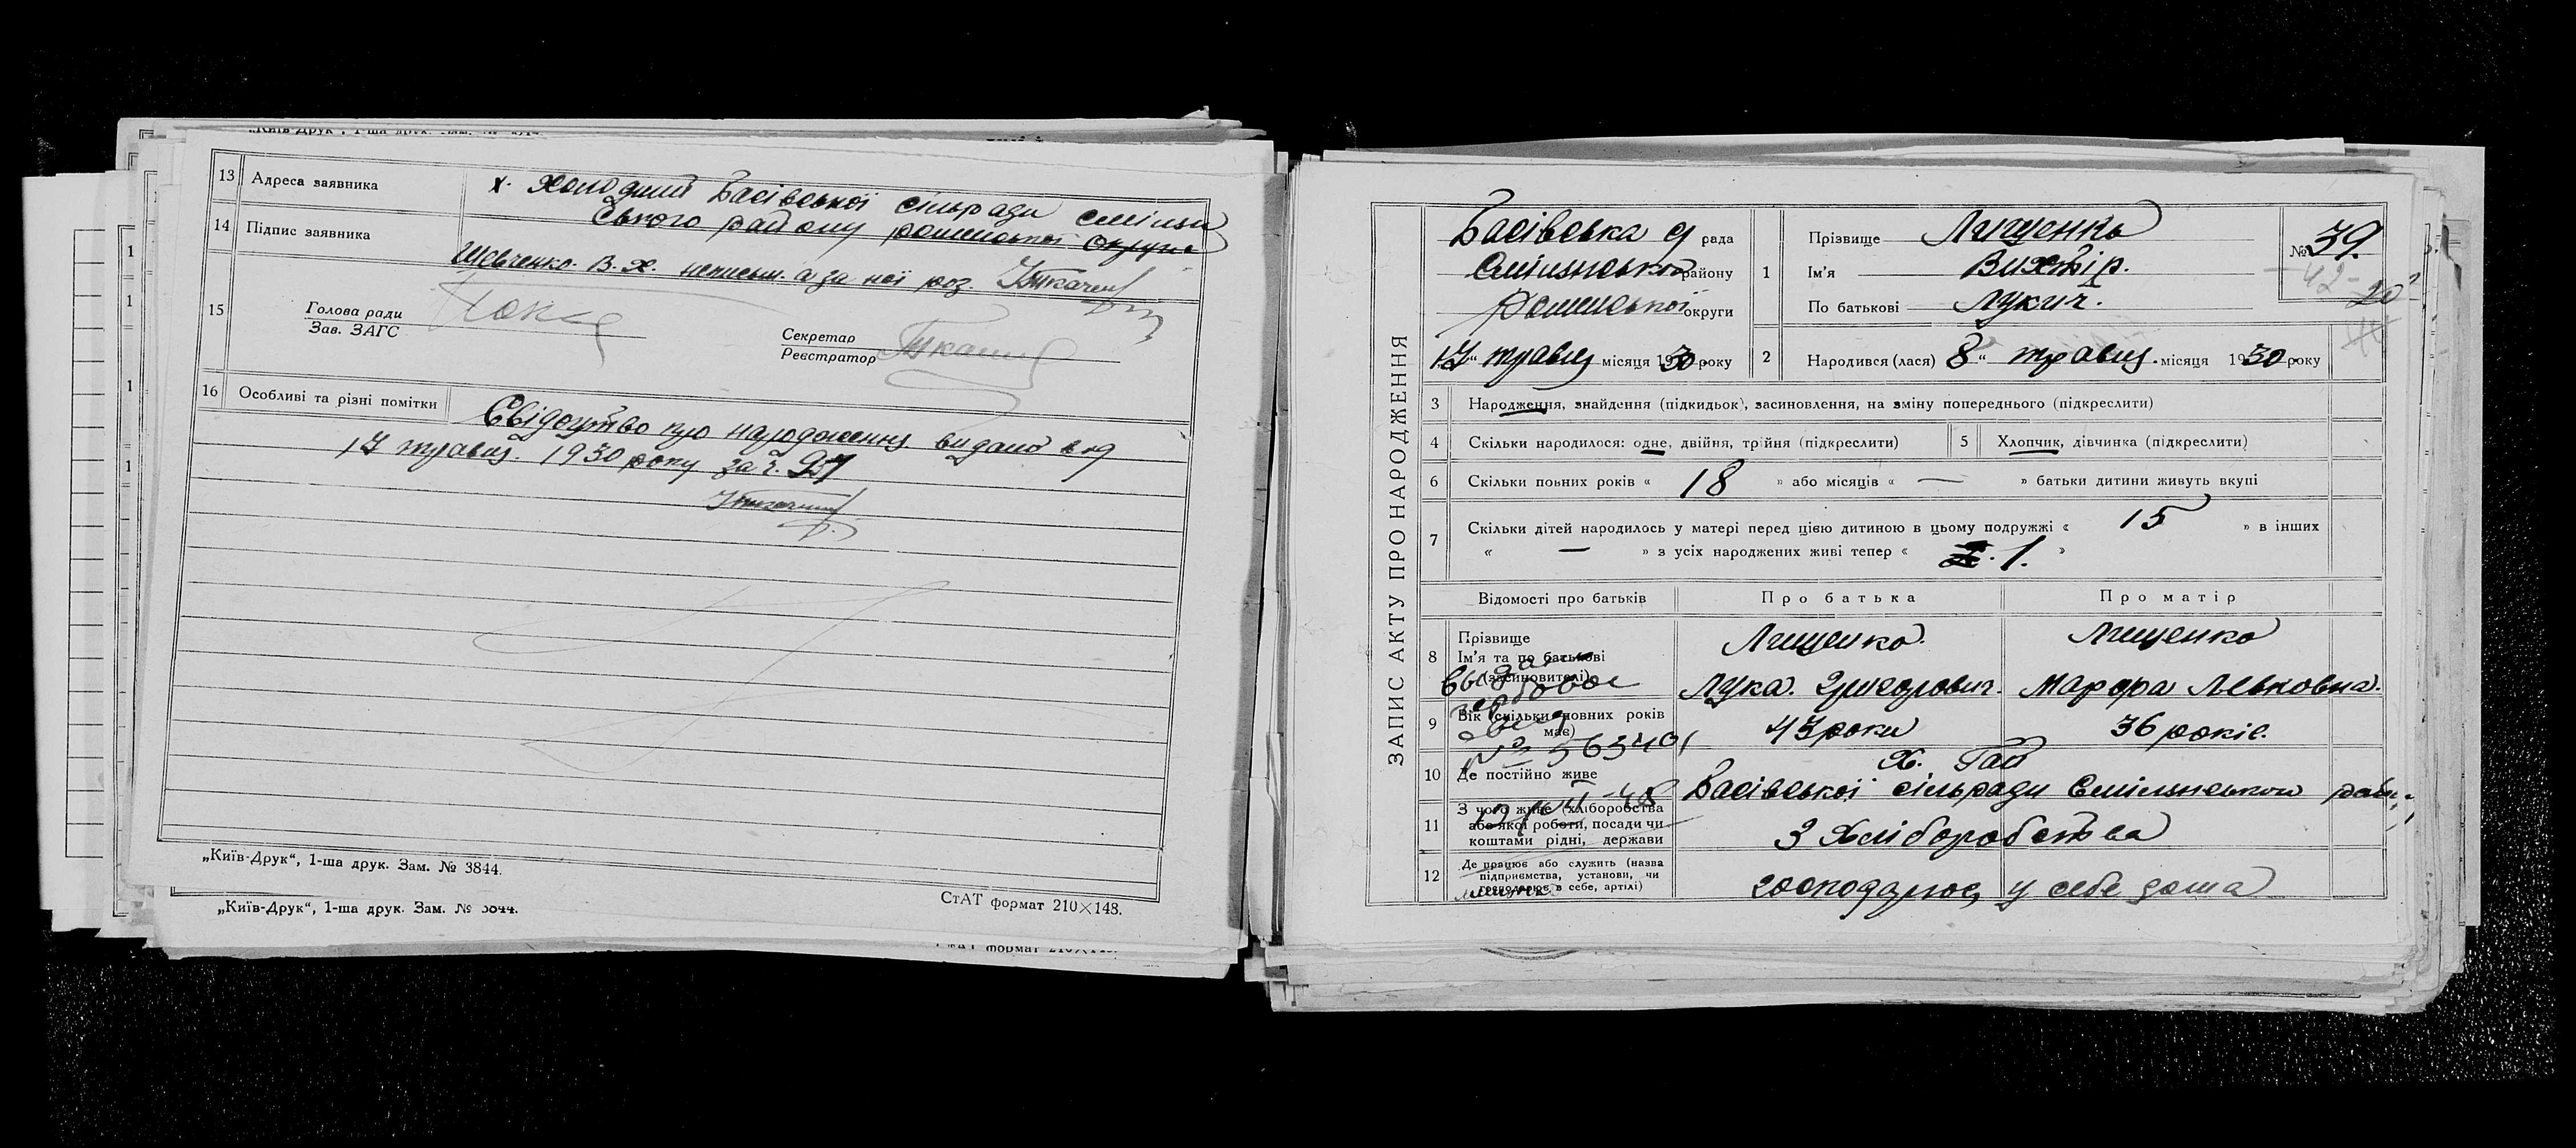 „Київ-Друк", 1-ша друк. Зам. №
13 Адреса заявника х. Холодний Басівської сільради смілян
ського району роменської округи
14 Підпис заявника
Шевченко. В. Х. неписьм. а за неї роз.
15 Голова ради
Зав. ЗАГС
Секретар
Реєстратор
16 Особливі та різні помітки Свідоцтво про народження видано
17 травня. 1930 року за ч.
„Київ-Друк", 1-ша друк. Зам. № 3844.
„Київ-Друк", 1-ша друк. Зам. № 3844.
СтАТ формат 210×148.
ЗАПИС АКТУ ПРО НАРОДЖЕННЯ
Басівська рада
Смілянської району
Роменської округи
17 " травня місяця 1930 року
1 Прізвище Лищенко
Ім'я Вихтір.
По батькові Лукич.
№ 39.
42
2 Народився (лася) 8 " травня. місяця 1930 року
3 Народження, знайдення (підкидьок), засиновлення, на зміну попереднього (підкреслити)
4 Скільки народилося: одне, двійня, трійня (підкреслити) 5 Хлопчик, дівчинка (підкреслити)
6 Скільки повних років « 18 » або місяців « — » батьки дитини живуть вкупі
7 Скільки дітей народилось у матері перед цією дитиною в цьому подружжі « 15 » в інших
« — » з усіх народжених живі тепер « 1. »
Відомості про батьків Про батька Про матір
8 Прізвище Лищенко. Лищенко
Ім'я та по батькові
(засиновителі) Лука. Григорович. Марфа Левковна.
9 Вік (скільки повних років
має) 43 роки 36 років.
10 Де постійно живе Х. Гай
Басівської сільради Смілянського
11 З чого живе (хліборобства
або якої роботи, посади чи
коштами рідні, держави З Хліборобства
12 Де працює або служить (назва
підприємства, установи, чи
господарює в себе, артілі) господарює у себе дома